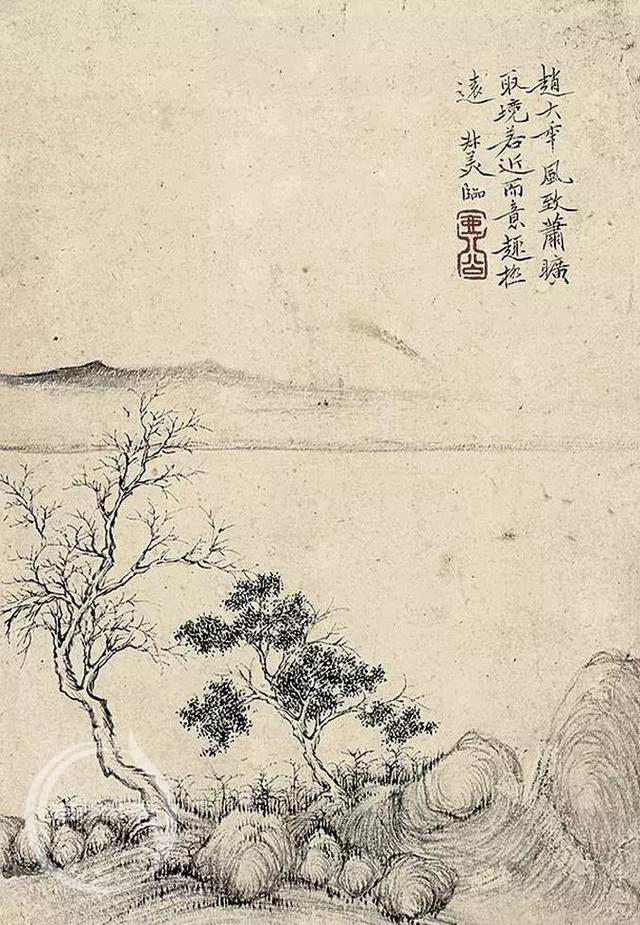 趙大年風致蕭曠
取境若近而意趣極
遠 美臨